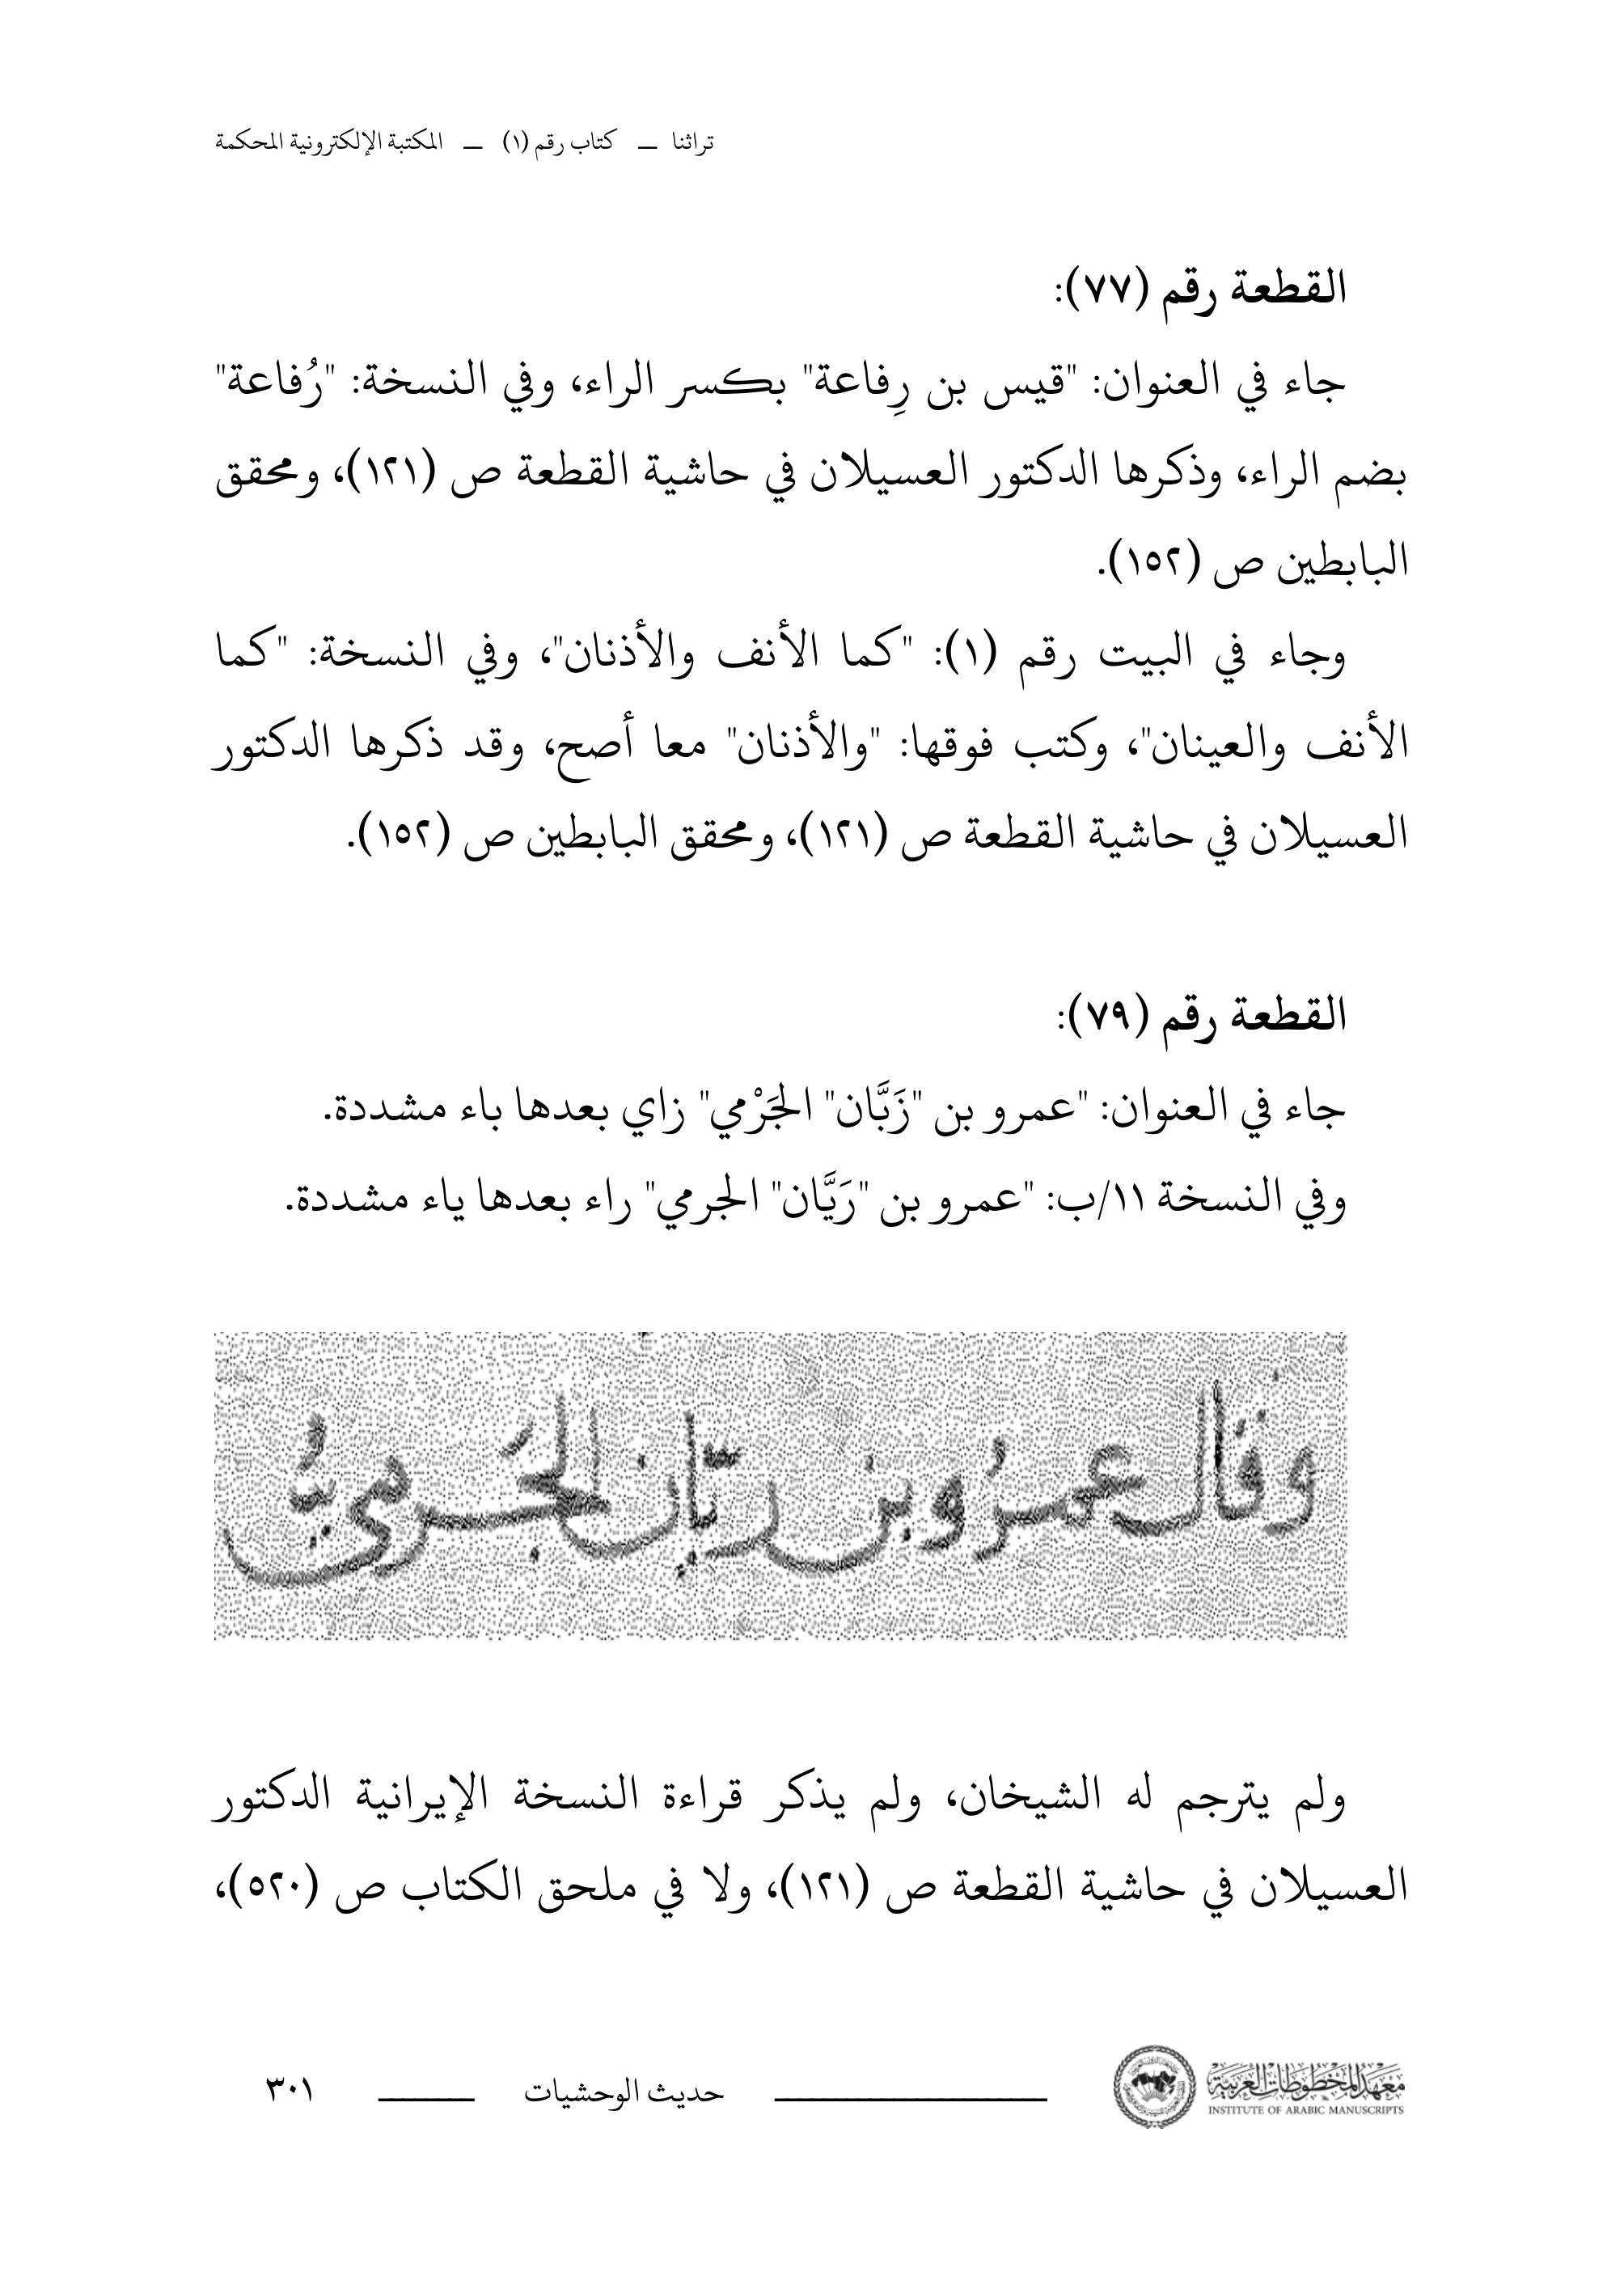 تراثنا ـــ كتاب رقم (١) ـــ المكتبة الإلكترونية المحكمة
القطعة رقم (٧٧):
جاء في العنوان: "قيس بن رِفاعة" بكسر الراء، وفي النسخة: "رُفاعة"
بضم الراء، وذكرها الدكتور العسيلان في حاشية القطعة ص (١٢١)، ومحقق
البابطين ص (١٥٢).
وجاء في البيت رقم (١): "كما الأنف والأذنان"، وفي النسخة: "كما
الأنف والعينان"، وكتب فوقها: "والأذنان" معا أصح، وقد ذكرها الدكتور
العسيلان في حاشية القطعة ص (١٢١)، ومحقق البابطين ص (١٥٢).
القطعة رقم (٧٩):
جاء في العنوان: "عمرو بن "زَبَّان" الجَرْمي" زاي بعدها باء مشددة.
وفي النسخة ١١/ب: "عمرو بن "رَيَّان" الجرمي" راء بعدها ياء مشددة.
وقال عمرُو بن ريّان الجَرميُّ
ولم يترجم له الشيخان، ولم يذكر قراءة النسخة الإيرانية الدكتور
العسيلان في حاشية القطعة ص (١٢١)، ولا في ملحق الكتاب ص (٥٢٠)،
معهد المخطوطات العربية
INSTITUTE OF ARABIC MANUSCRIPTS
حديث الوحشيات
٣٠١